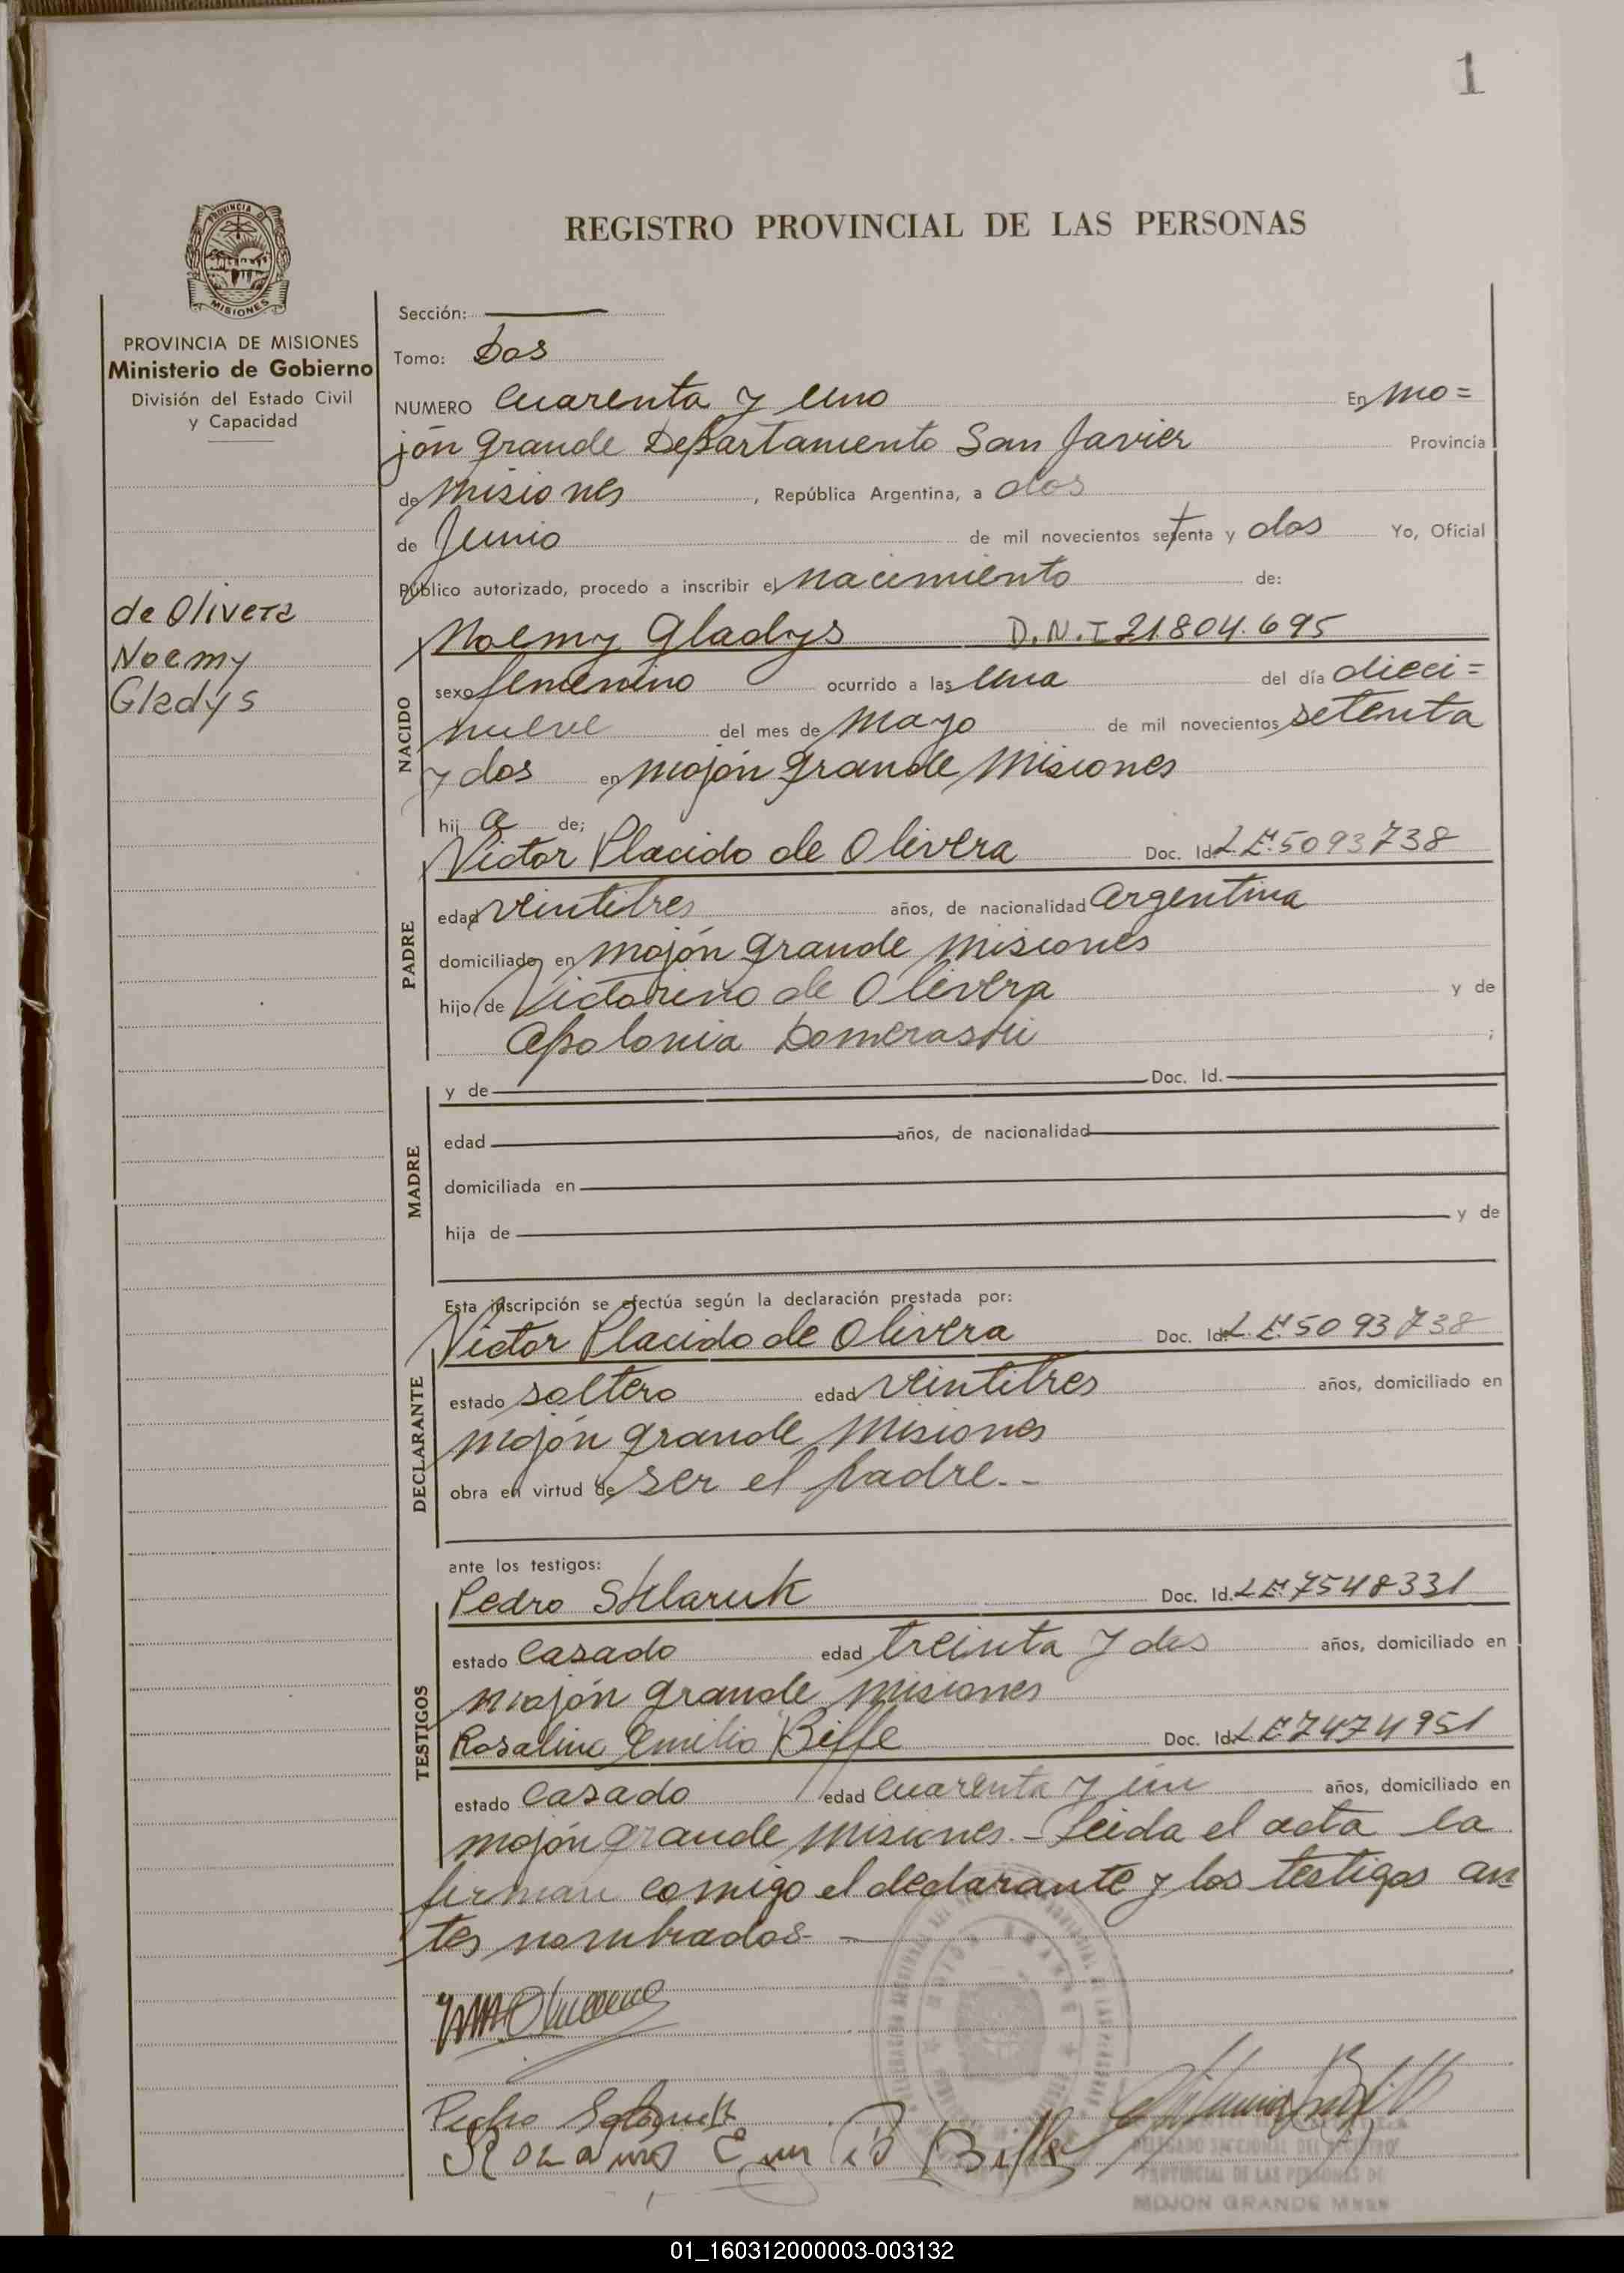 1
REGISTRO PROVINCIAL DE LAS PERSONAS
PROVINCIA DE
MISIONES
PROVINCIA DE MISIONES
Ministerio de Gobierno
División del Estado Civil
y Capacidad
de Olivera
Noemy
Gladys
Sección:
Tomo: Dos
NUMERO Cuarenta y uno En Mo=
jón grande Departamento San Javier Provincia
de Misiones, República Argentina, a dos
de Junio de mil novecientos setenta y dos Yo, Oficial
Público autorizado, procedo a inscribir el nacimiento de:
NACIDO
Noemy Gladys D.N.I 21804.695
sexo femenino ocurrido a las una del día dieci=
nueve del mes de Mayo de mil novecientos setenta
y dos en Mojón grande Misiones
hij a de;
PADRE
Victor Placido de Olivera Doc. Id. L.E. 5093738
edad veintitres años, de nacionalidad Argentina
domiciliado en Mojón grande Misiones
hijo de Victorino de Olivera y de
Apolonia ;
MADRE
y de Doc. Id.
edad años, de nacionalidad
domiciliada en
hija de y de
Esta inscripción se efectúa según la declaración prestada por:
DECLARANTE
Victor Placido de Olivera Doc. Id. L.E. 5093738
estado soltero edad veintitres años, domiciliado en
Mojón grande Misiones
obra en virtud de ser el padre.-
ante los testigos:
TESTIGOS
Pedro Sklaruk Doc. Id. L.E. 7548331
estado casado edad treinta y dos años, domiciliado en
Mojón grande Misiones
Rosalino Emilio Biffe Doc. Id. L.E. 7474951
estado casado edad cuarenta y un años, domiciliado en
Mojón grande Misiones.- Leida el acta la
firman comigo el declarante y los testigos an=
tes nombrados.-
Pedro
DELEGADO SECCIONAL DEL REGISTRO
PROVINCIAL DE LAS PERSONAS DE
MOJON GRANDE MNES
01_160312000003-003132